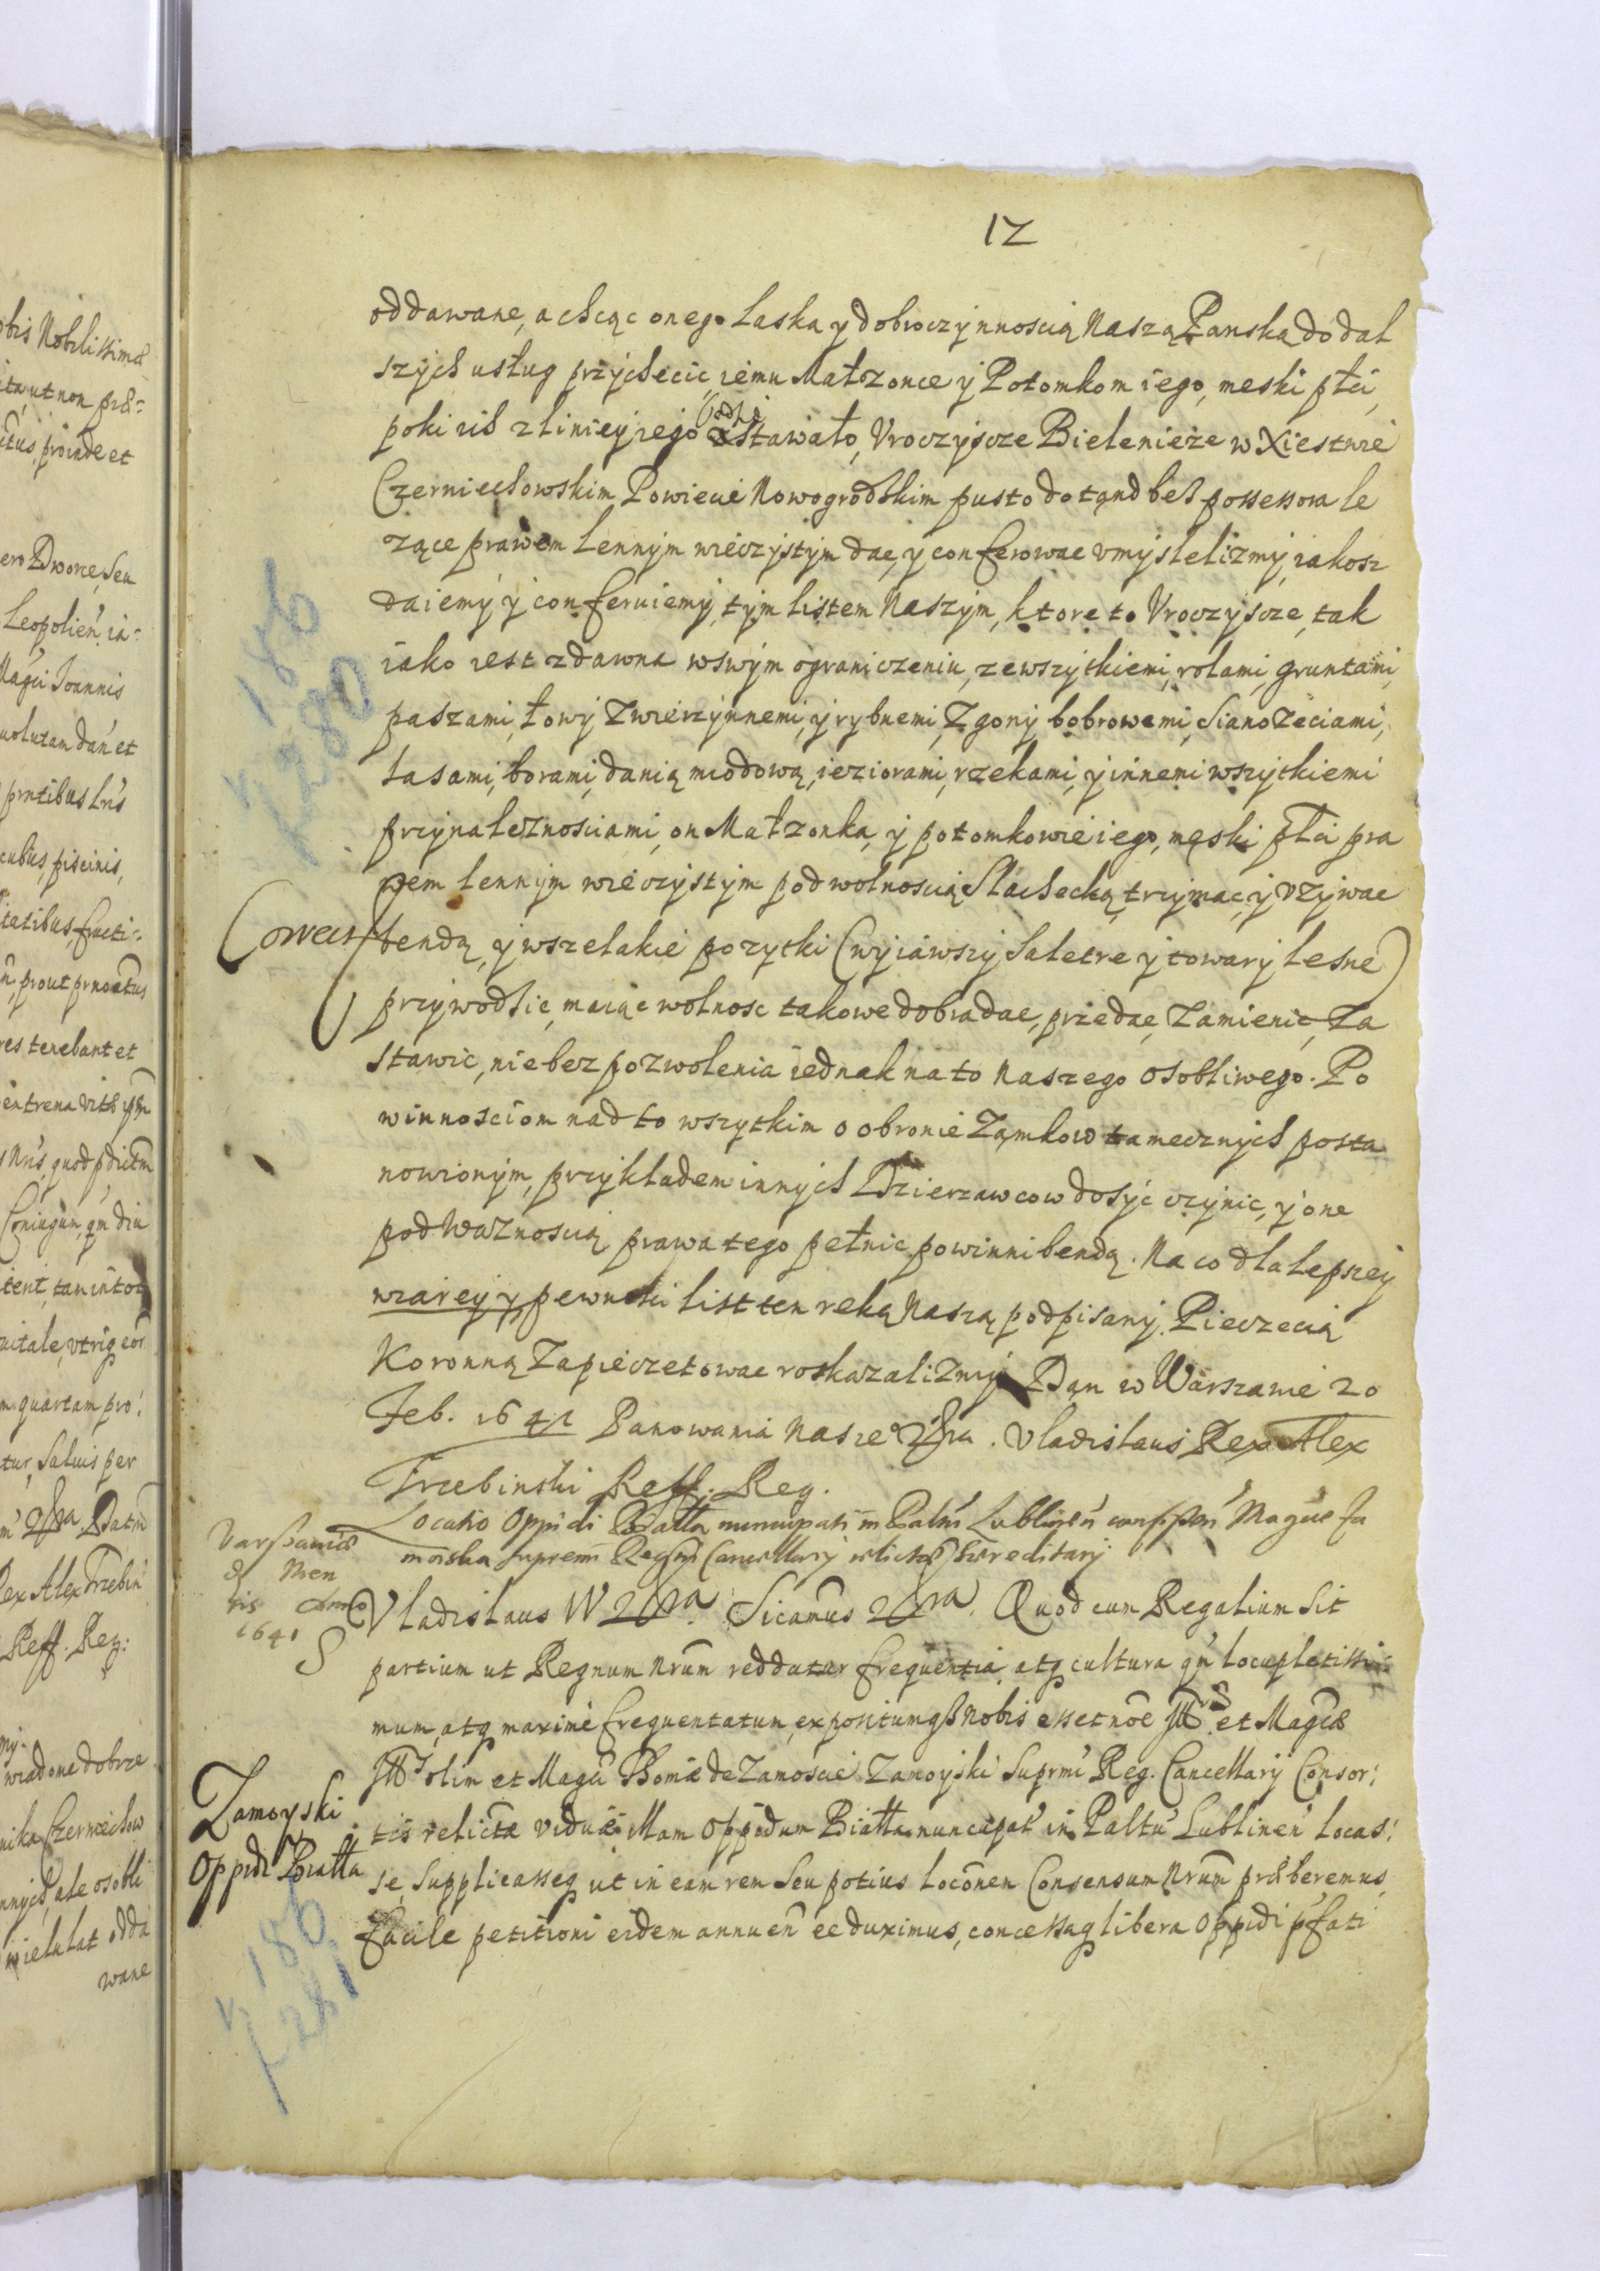 12
oddawane, a chcąc onego Laską y dobroczynnoscią Naszą Panską do dal
szych usług przychecic, iemu Małzonce y Potomkom iego, meski płci,
poki ich z liniey iego stawało, Vroczyscze Bielenieze w Xiestwie
Czerniechowskim Powiecie Nowogrodskim pusto dotąnd bes possessora le
zące prawem Lennym wieczystym dac, y conferowac vmyslelizmy, iakosz
daiemy y conferuiemy, tym listem Naszym, ktore to Vroczyscze, tak
iako iest zdawna wswym ograniczeniu, zewszytkiemi, rolami, gruntami,
paszami, łowy Zwierzynnemi, y rybnemi, Zgony bobrowemi, Sianozeciami,
Lasami, borami, danią miodową, ieziorami, rzekami, y innemi wszytkiemi
przynaleznosciami, on Małzonka, y potomkowie iego, męski płci pra
wem lennym wieczystym pod wolnoscią Slachecką, trzymac, y vzywac
bendą, y wszelakie pozytki (wyiąwszy Saletre y towary lesne)
przywodsic, maiąc wolnosc takowe dobra dac, przedac, Zamienic, Za
stawic, nie bez pozwolenia iednak na to Naszego osobliwego. Po
winnosciom nad to wszytkim o obronie Zamkow tamecznych posta
nowionym, przykładem innych Dzierzawcow dosyc czynic, y one
pod Waznoscią prawa tego pełnic powinni bendą. Na co dla lepszey
wiarey y pewnosci list ten reką Naszą podpisany, Pieczecią
Koronną Zapieczetowac roskazalizmy. Dan w Warszawie 20
Feb. 1641 Panowania Nasze° &c. Vladislaus Rex Alex
Trzebinski Reff. Reg.
Locatio Oppidi Biatta nuncupati in Palatu Lublinen Magcae Za
moiska supremi Regni Cancellary relictae haereditary
Varsaviae
d Men
sis Anno
1641
Vladislaus IV &c. Sicanus &c. Quod cum Regalium sit
partium ut Regnum Nrum reddatur frequentia, atq cultura qm locupletissi
mum, atq maxime frequentatum, expositumq Nobis esset noe et Magcae
olim et Magci Thomae de Zamoscie Zamoyski Supremi Reg. Cancellarij Consor:
Zamoyski
Oppidi Biatta
tis relictae viduae illam Oppidum Biatta nuncupat in Paltu Lublinen locas:
se, supplicasseq ut in eam rem seu potius loconem Consensum Nrum praeberemus
facile petitioni eidem annuen ee duximus, concessaq libera Oppidi pfati
n 186
k 280
n 186
k 281
obis Nobilissimae
ita, ut non prae:
proinde et
Dworze, seu
Leopolien
Magci Joannis
volutam dan et
prntibus Lris
piscinis,
prout prnoatus
res tenebant et
Nris, quod pdictm
Coniugum, qm diu
vitale, vtriq eor
m quartam pro:
tur, Salvis per
&c. Datm
Rex Alex Trzebin
Reff. Reg:
wiadone dobrze
nika Czerniechow
nnych, ale osobli
wielu lat odda
wane